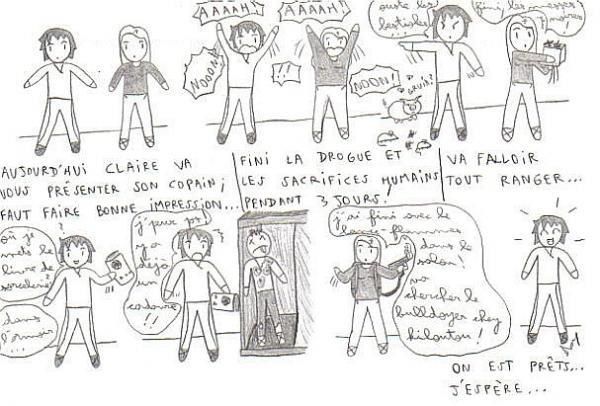 AAAAH!
AAAAH!
NOOON!
!!!
NOON!
GRUIK?
ouste les
bestioles!
fini les messes
noires!
AUJOURD'HUI CLAIRE VA
VOUS PRÉSENTER SON COPAIN;
FAUT FAIRE BONNE IMPRESSION...
FINI LA DROGUE ET
LES SACRIFICES HUMAINS
PENDANT 3 JOURS!
VA FALLOIR
TOUT RANGER...
où je
mets le
livre de
sorcellerie?
dans
l'armoire
j'peux pas
y a
déjà
un
cadavre
!!
j'ai fini avec le
lance-flammes
dans le
salon!
va
chercher le
bulldozer chez
hilouton!
ON EST PRÊTS...
J'ESPÈRE...